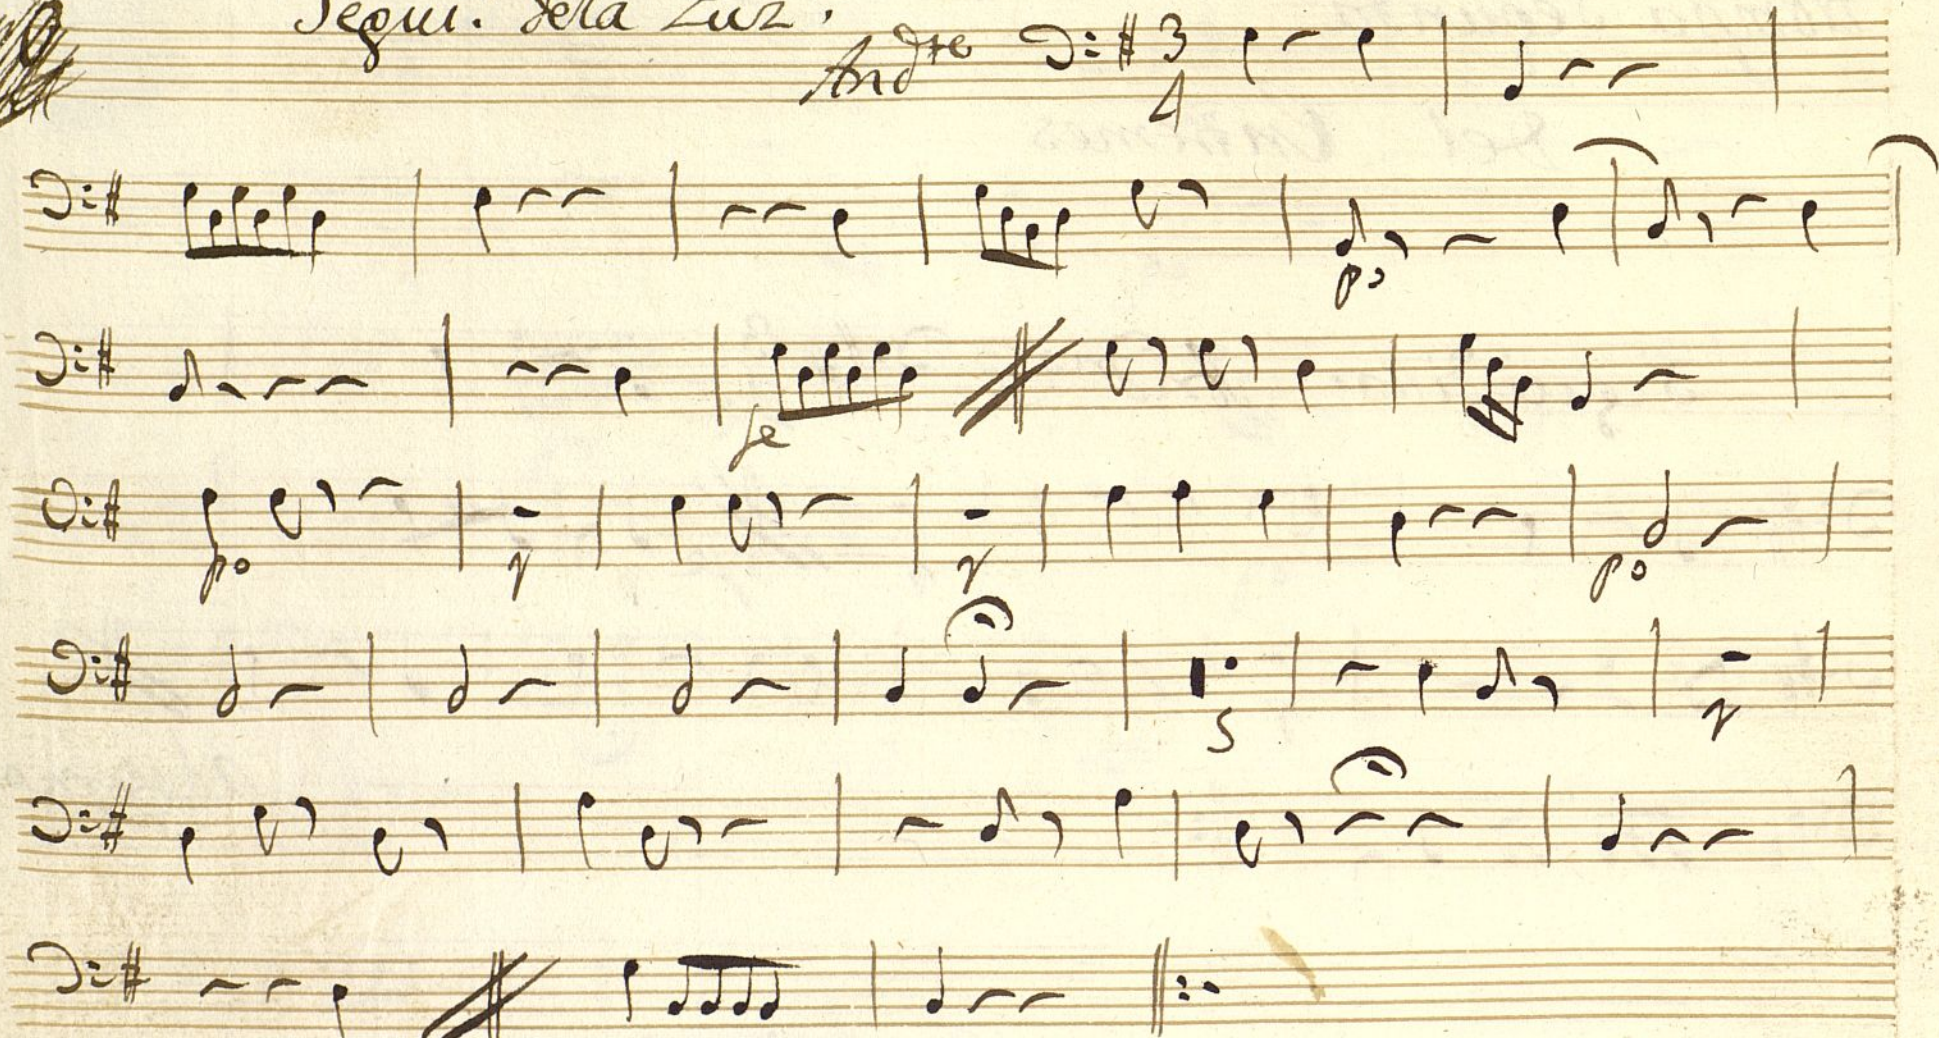 Segui. dela Luz.
Andte 3
4
po
fe
po po
5